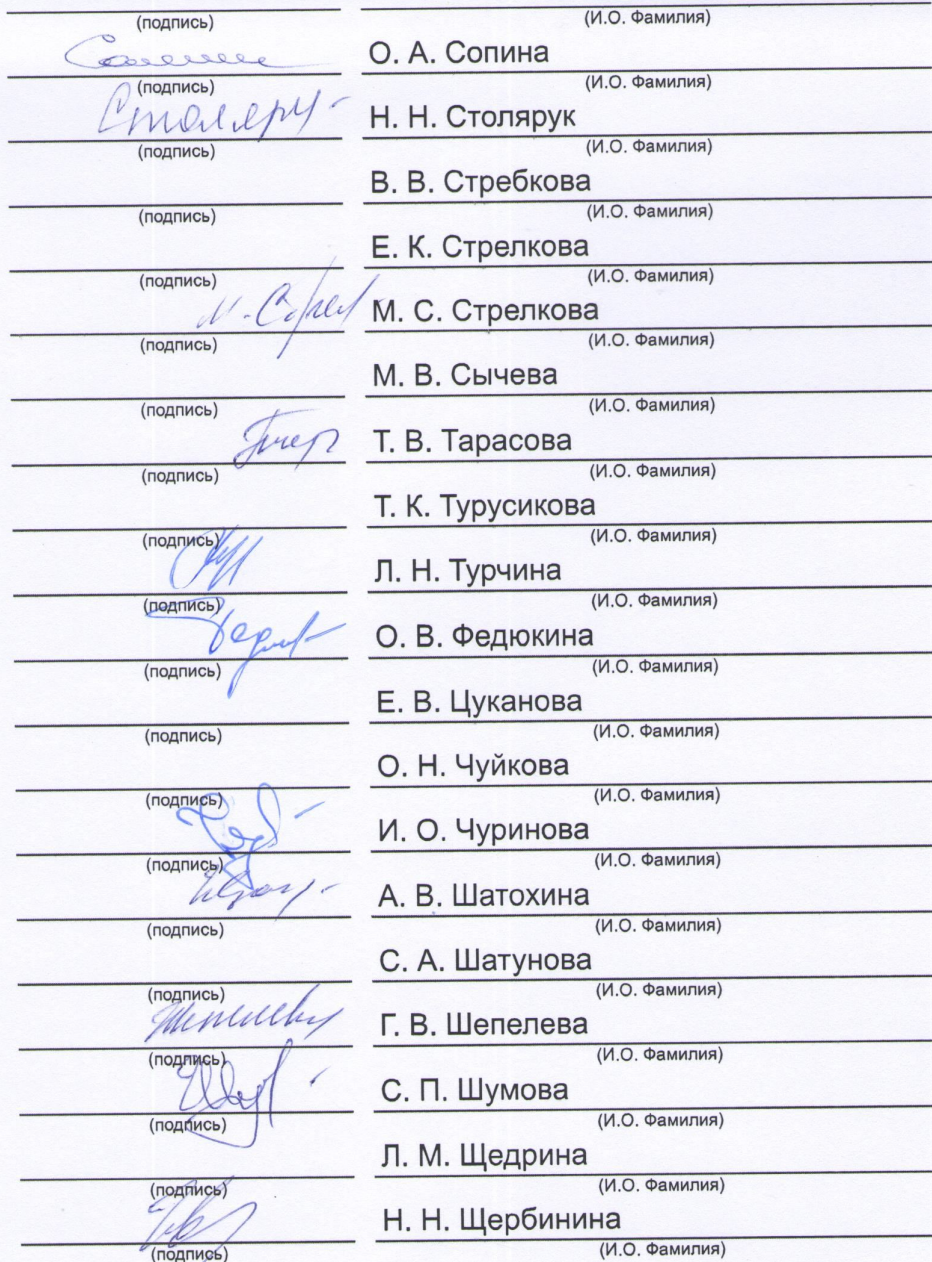 (подпись) (И.О. Фамилия)
О. А. Сопина
(подпись) (И.О. Фамилия)
Столярук Н. Н. Столярук
(подпись) (И.О. Фамилия)
В. В. Стребкова
(подпись) (И.О. Фамилия)
Е. К. Стрелкова
(подпись) (И.О. Фамилия)
М. С. Стрелкова
(подпись) (И.О. Фамилия)
М. В. Сычева
(подпись) (И.О. Фамилия)
Т. В. Тарасова
(подпись) (И.О. Фамилия)
Т. К. Турусикова
(подпись) (И.О. Фамилия)
Л. Н. Турчина
(подпись) (И.О. Фамилия)
О. В. Федюкина
(подпись) (И.О. Фамилия)
Е. В. Цуканова
(подпись) (И.О. Фамилия)
О. Н. Чуйкова
(подпись) (И.О. Фамилия)
И. О. Чуринова
(подпись) (И.О. Фамилия)
А. В. Шатохина
(подпись) (И.О. Фамилия)
С. А. Шатунова
(подпись) (И.О. Фамилия)
Г. В. Шепелева
(подпись) (И.О. Фамилия)
С. П. Шумова
(подпись) (И.О. Фамилия)
Л. М. Щедрина
(подпись) (И.О. Фамилия)
Н. Н. Щербинина
(подпись) (И.О. Фамилия)